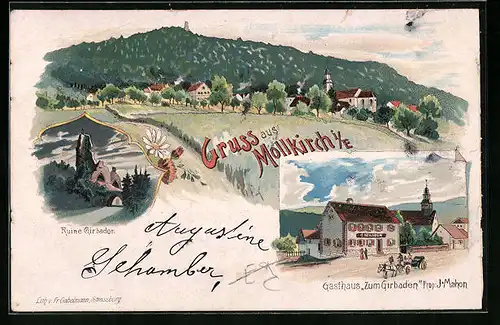 Gruss aus
Mollkirch i/E
Ruine Girbaden
Augustine
Schamber
Gasthaus „Zum Girbaden" Prop. J. Mahon
Lith. v. Fr. Gabelmann, Strassburg